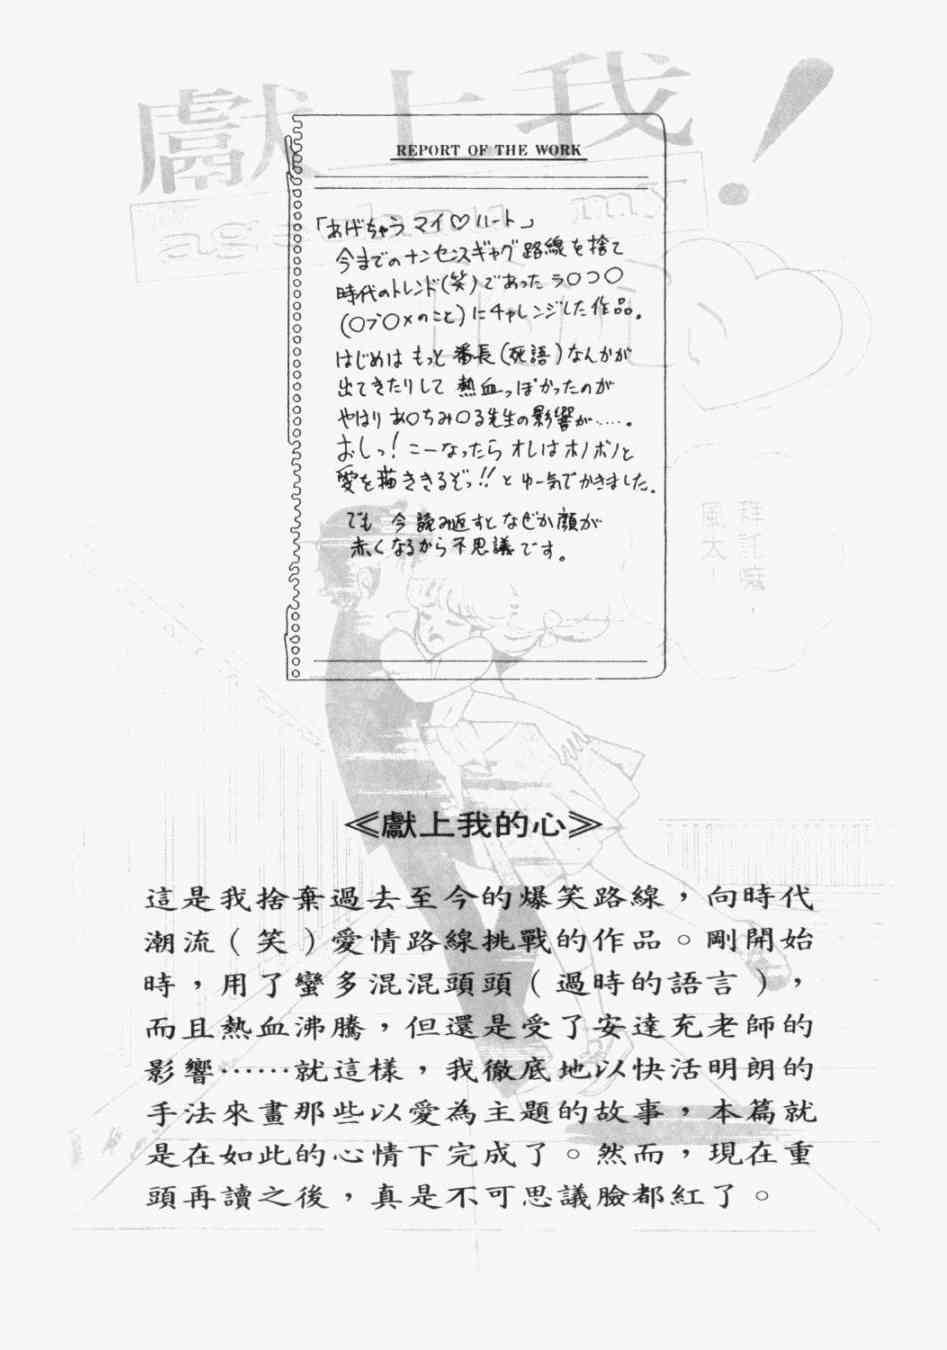 獻上我！
age・chau my
REPORT OF THE WORK
「あげちゃうマイ♡ハート」
今までのナンセンスギャグ路線を捨て
時代のトレンド(笑)であったラ○コ○
(○ブ○メのこと)にチャレンジした作品。
はじめは もっと 番長(死語)なんかが
出てきたりして 熱血っぽかったのが
やはり あ○ちみ○る先生の影響が……。
おしっ！こーなったら オレはホノボノと
愛を描ききるぞっ!!と ゆー気でかきました。
でも 今 読み返すと なぜか顔が
赤くなるから不思議です。
拜託嘛，
風太！
≪獻上我的心≫
這是我捨棄過去至今的爆笑路線，向時代
潮流（笑）愛情路線挑戰的作品。剛開始
時，用了蠻多混混頭頭（過時的語言），
而且熱血沸騰，但還是受了安達充老師的
影響……就這樣，我徹底地以快活明朗的
手法來畫那些以愛為主題的故事，本篇就
是在如此的心情下完成了。然而，現在重
頭再讀之後，真是不可思議臉都紅了。